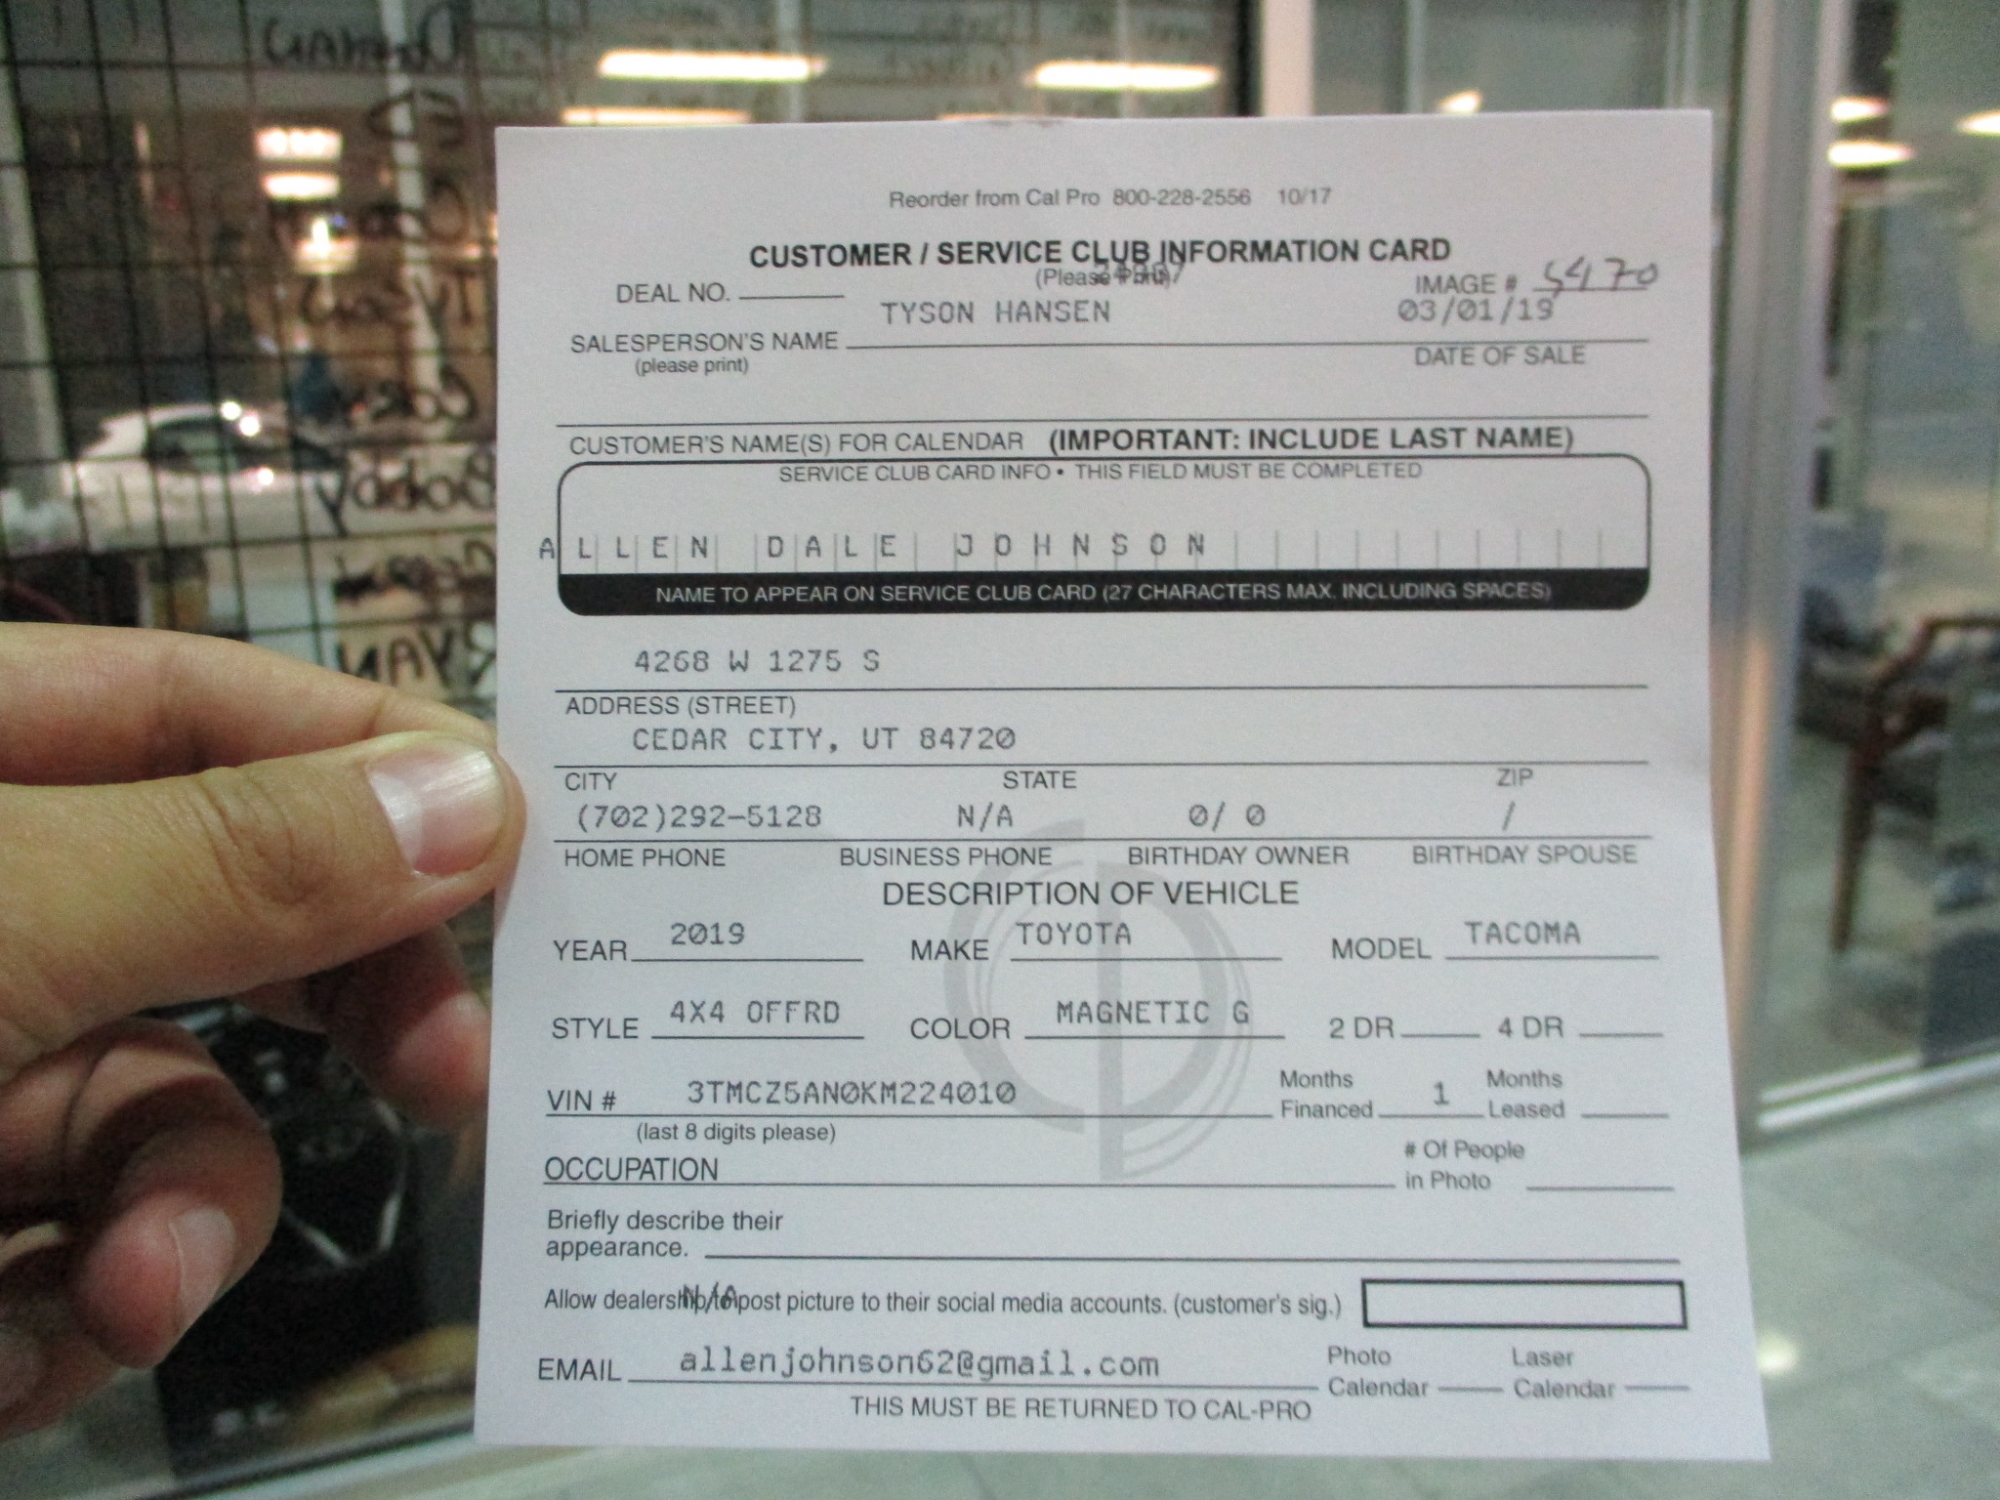 Reorder from Cal Pro 800-228-2556 10/17
CUSTOMER / SERVICE CLUB INFORMATION CARD
(Please Print)
DEAL NO. IMAGE # 5470
TYSON HANSEN 03/01/19
SALESPERSON'S NAME DATE OF SALE
(please print)
CUSTOMER'S NAME(S) FOR CALENDAR (IMPORTANT: INCLUDE LAST NAME)
SERVICE CLUB CARD INFO • THIS FIELD MUST BE COMPLETED
ALLEN DALE JOHNSON
NAME TO APPEAR ON SERVICE CLUB CARD (27 CHARACTERS MAX. INCLUDING SPACES)
4268 W 1275 S
ADDRESS (STREET)
CEDAR CITY, UT 84720
CITY STATE ZIP
(702)292-5128 N/A 0/ 0 /
HOME PHONE BUSINESS PHONE BIRTHDAY OWNER BIRTHDAY SPOUSE
DESCRIPTION OF VEHICLE
YEAR 2019 MAKE TOYOTA MODEL TACOMA
STYLE 4X4 OFFRD COLOR MAGNETIC G 2 DR 4 DR
VIN # 3TMCZ5AN0KM224010 Months Financed 1 Months Leased
(last 8 digits please)
OCCUPATION # Of People in Photo
Briefly describe their
appearance.
N/A
Allow dealership to post picture to their social media accounts. (customer's sig.)
EMAIL allenjohnson62@gmail.com Photo Calendar Laser Calendar
THIS MUST BE RETURNED TO CAL-PRO
Bobby
RYAN